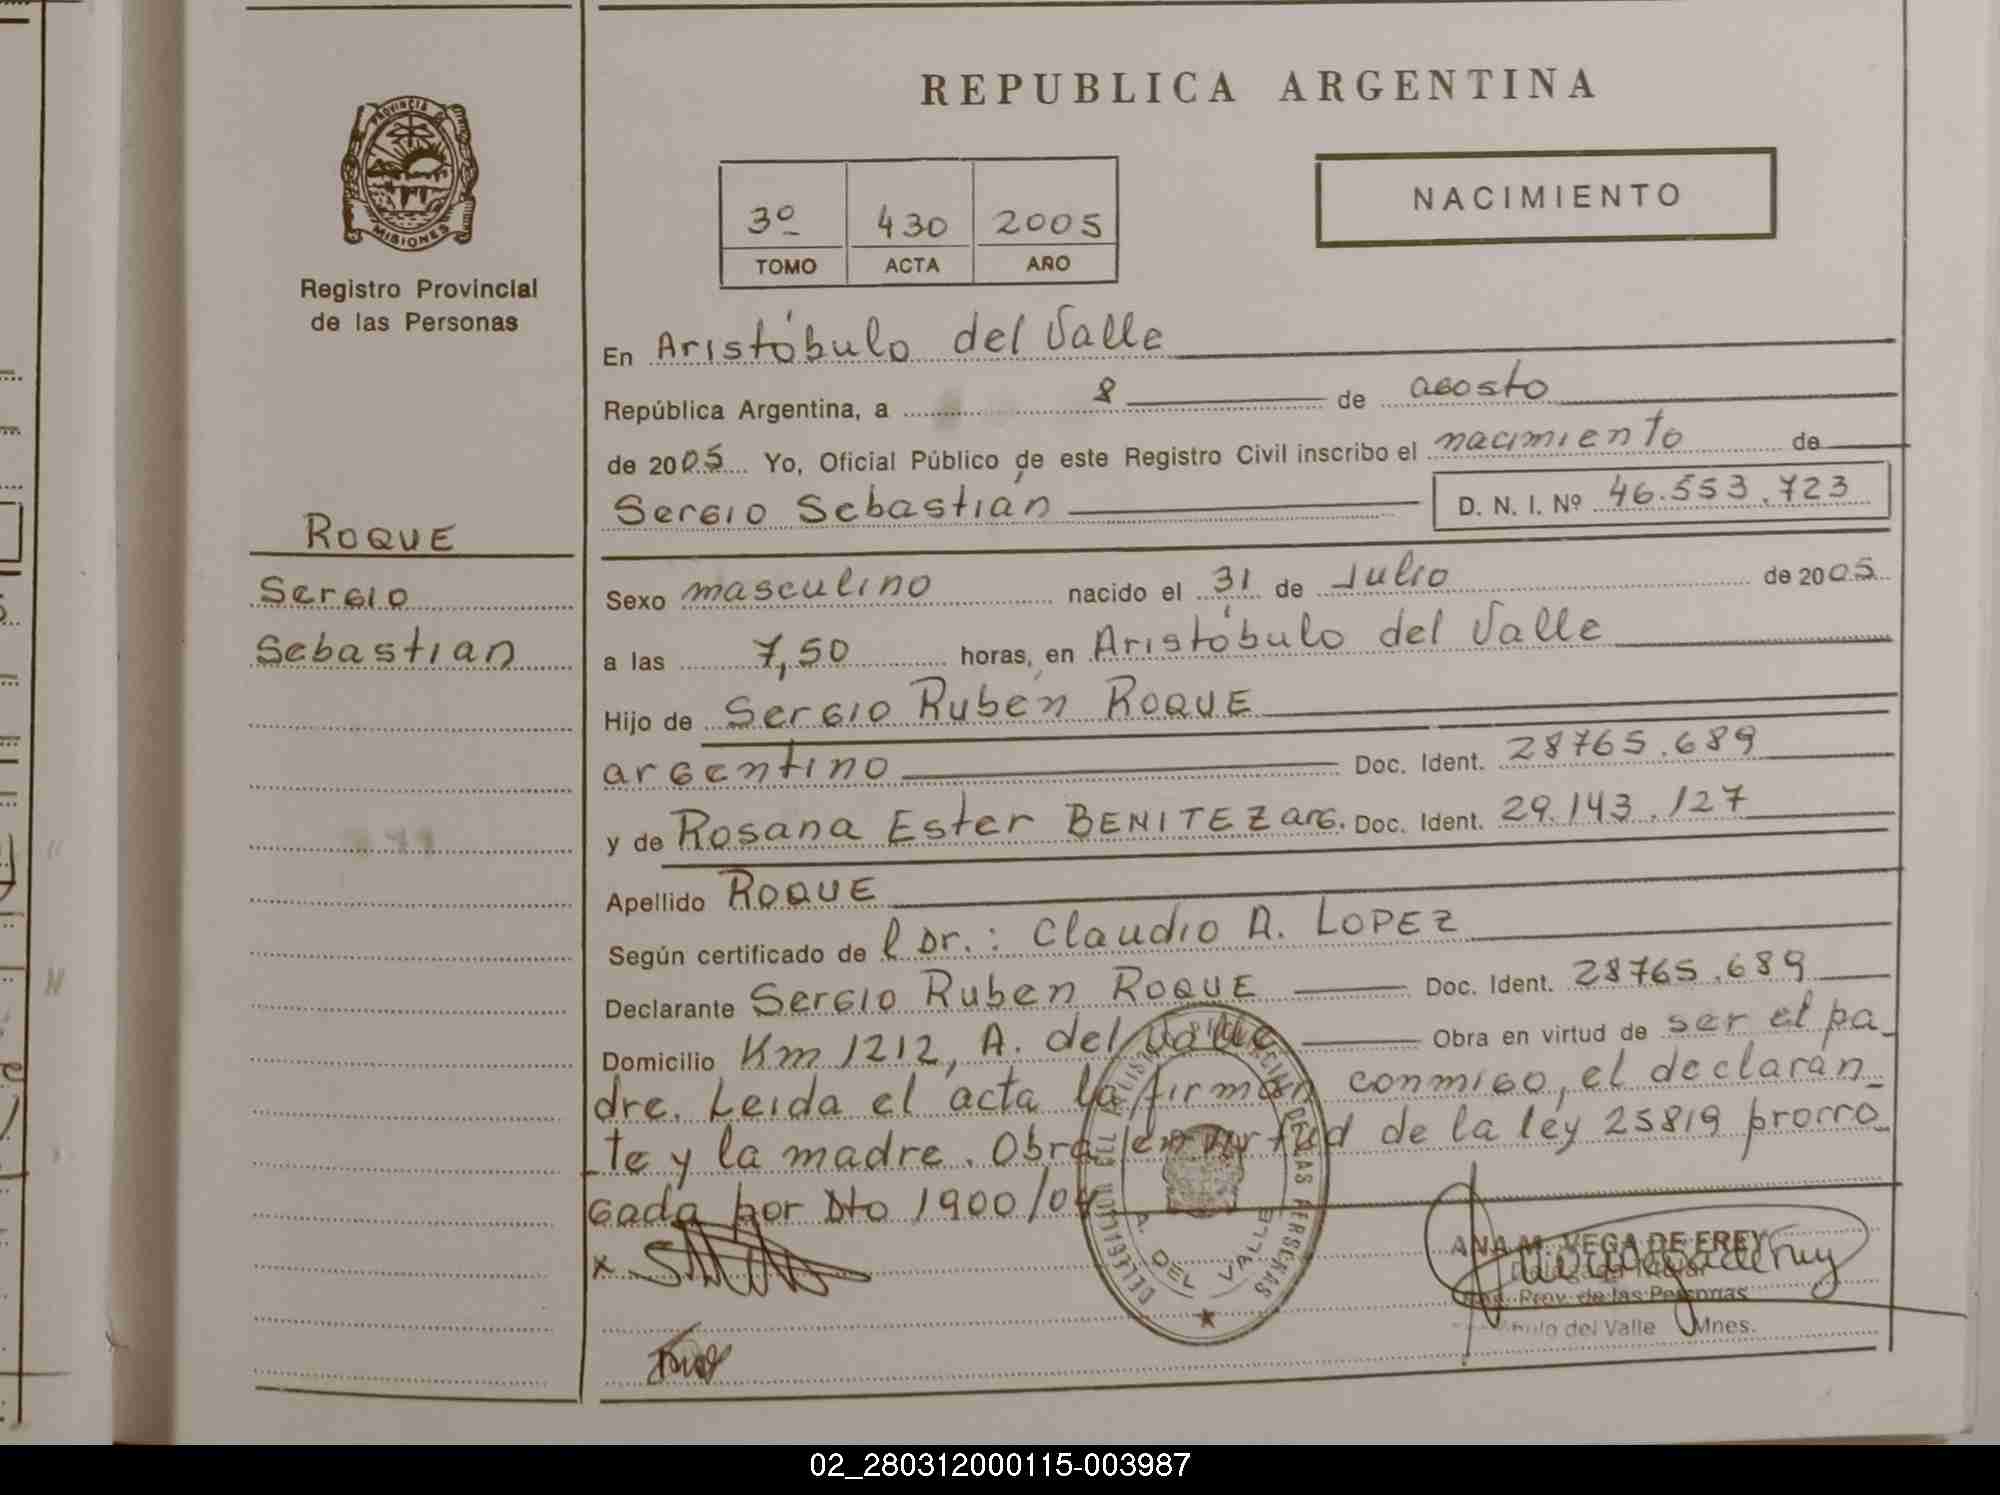 REPUBLICA ARGENTINA
PROVINCIA DE
MISIONES
Registro Provincial
de las Personas
3º 430 2005
TOMO ACTA AÑO
NACIMIENTO
En Aristóbulo del Valle
República Argentina, a 8 de agosto
de 2005 Yo, Oficial Público de este Registro Civil inscribo el nacimiento de
Sergio Sebastián D. N. I. Nº 46.553.723
ROQUE
Sergio
Sebastian
Sexo masculino nacido el 31 de Julio de 2005
a las 7,50 horas, en Aristóbulo del Valle
Hijo de Sergio Rubén ROQUE
argentino Doc. Ident. 28765.689
y de Rosana Ester BENITEZ arg. Doc. Ident. 29.143.127
Apellido ROQUE
Según certificado de l Dr.: Claudio A. LOPEZ
Declarante Sergio Ruben ROQUE Doc. Ident. 28765.689
Domicilio Km 1212, A. del Valle Obra en virtud de ser el pa_
dre. Leida el acta la firman conmigo, el declaran_
_te y la madre. Obra en virtud de la ley 25819 prorro_
gada por Dto 1900/04
x
A. DEL VALLE
ANA M. VEGA DE FREY
Prov. de las Personas
del Valle Mnes.
02_280312000115-003987